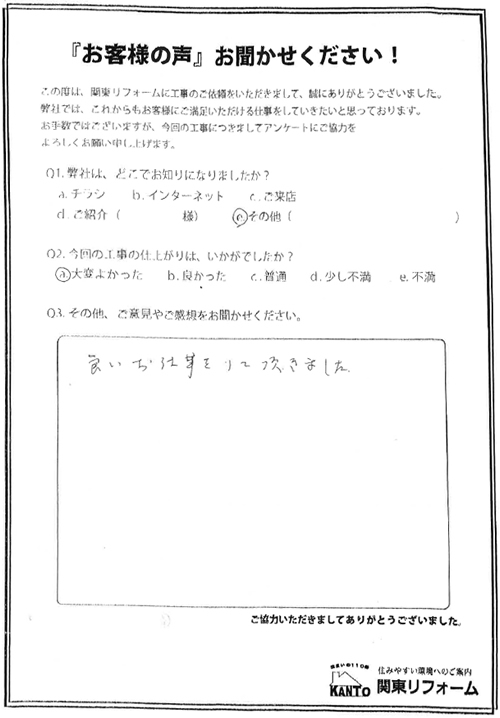 『お客様の声』お聞かせください！
この度は、関東リフォームに工事のご依頼をいただきまして、誠にありがとうございました。
弊社では、これからもお客様にご満足いただける仕事をしていきたいと思っております。
お手数ではございますが、今回の工事につきましてアンケートにご協力を
よろしくお願い申し上げます。
Q1. 弊社は、どこでお知りになりましたか？
a. チラシ b. インターネット c. ご来店
d. ご紹介（ 様） e. その他（ ）
Q2. 今回の工事の仕上がりは、いかがでしたか？
a. 大変よかった b. 良かった c. 普通 d. 少し不満 e. 不満
Q3. その他、ご意見やご感想をお聞かせください。
良いお仕事をして頂きました
ご協力いただきましてありがとうございました。
住まいの110番
住みやすい環境へのご案内
KANTO 関東リフォーム